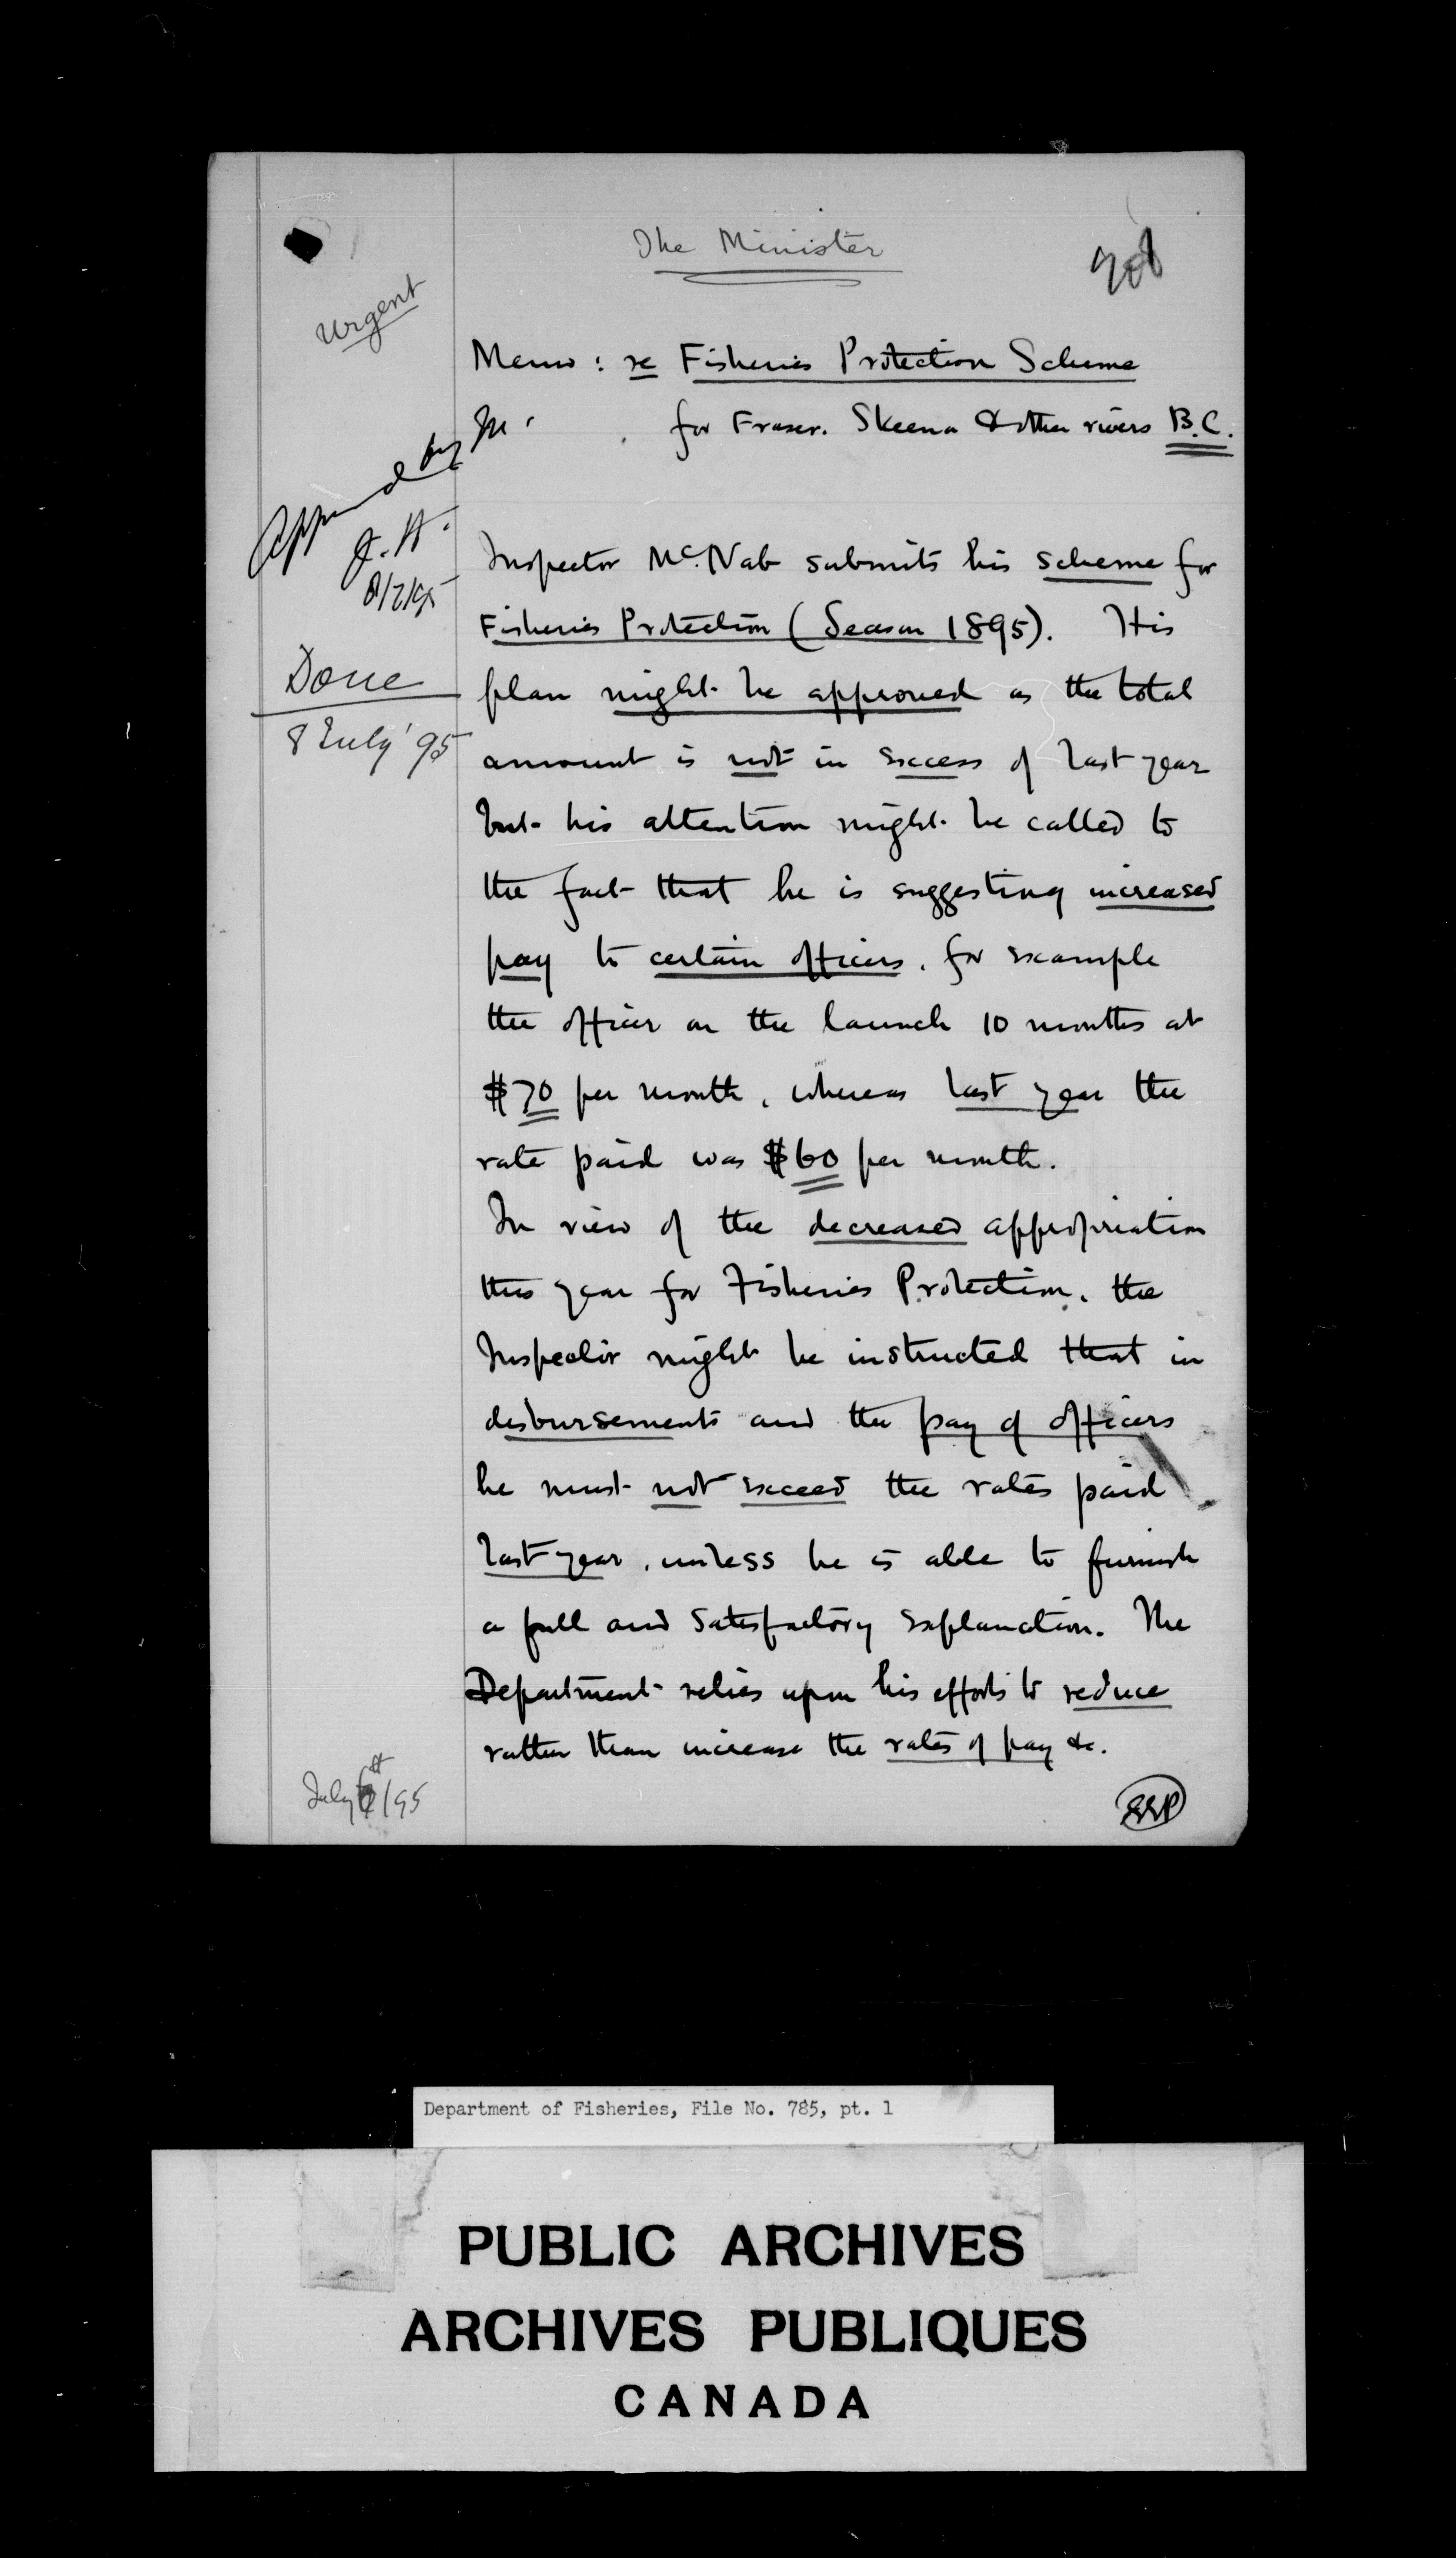 The Minister
Urgent
Memo : re Fisheries Protection Scheme
for Fraser. Skeena & other rivers B.C.
Approved by M.
J. H.
8/7/95
Done
8 July '95
Inspector McNab submits his scheme for
Fisheries Protection (Season 1895). His
plan might be approved as the total
amount is not in excess of last year
but his attention might be called to
the fact that he is suggesting increased
pay to certain officers. for example
the officer on the launch 10 months at
$70 per month, whereas last year the
rate paid was $60 per month.
In view of the decreased appropriation
this year for Fisheries Protection, the
Inspector might be instructed that in
disbursements and the pay of officers
he must not exceed the rates paid
last year, unless he is able to furnish
a full and satisfactory explanation. The
Department relies upon his efforts to reduce
rather than increase the rates of pay &c.
July /95
EEP
Department of Fisheries, File No. 785, pt. 1
PUBLIC ARCHIVES
ARCHIVES PUBLIQUES
CANADA